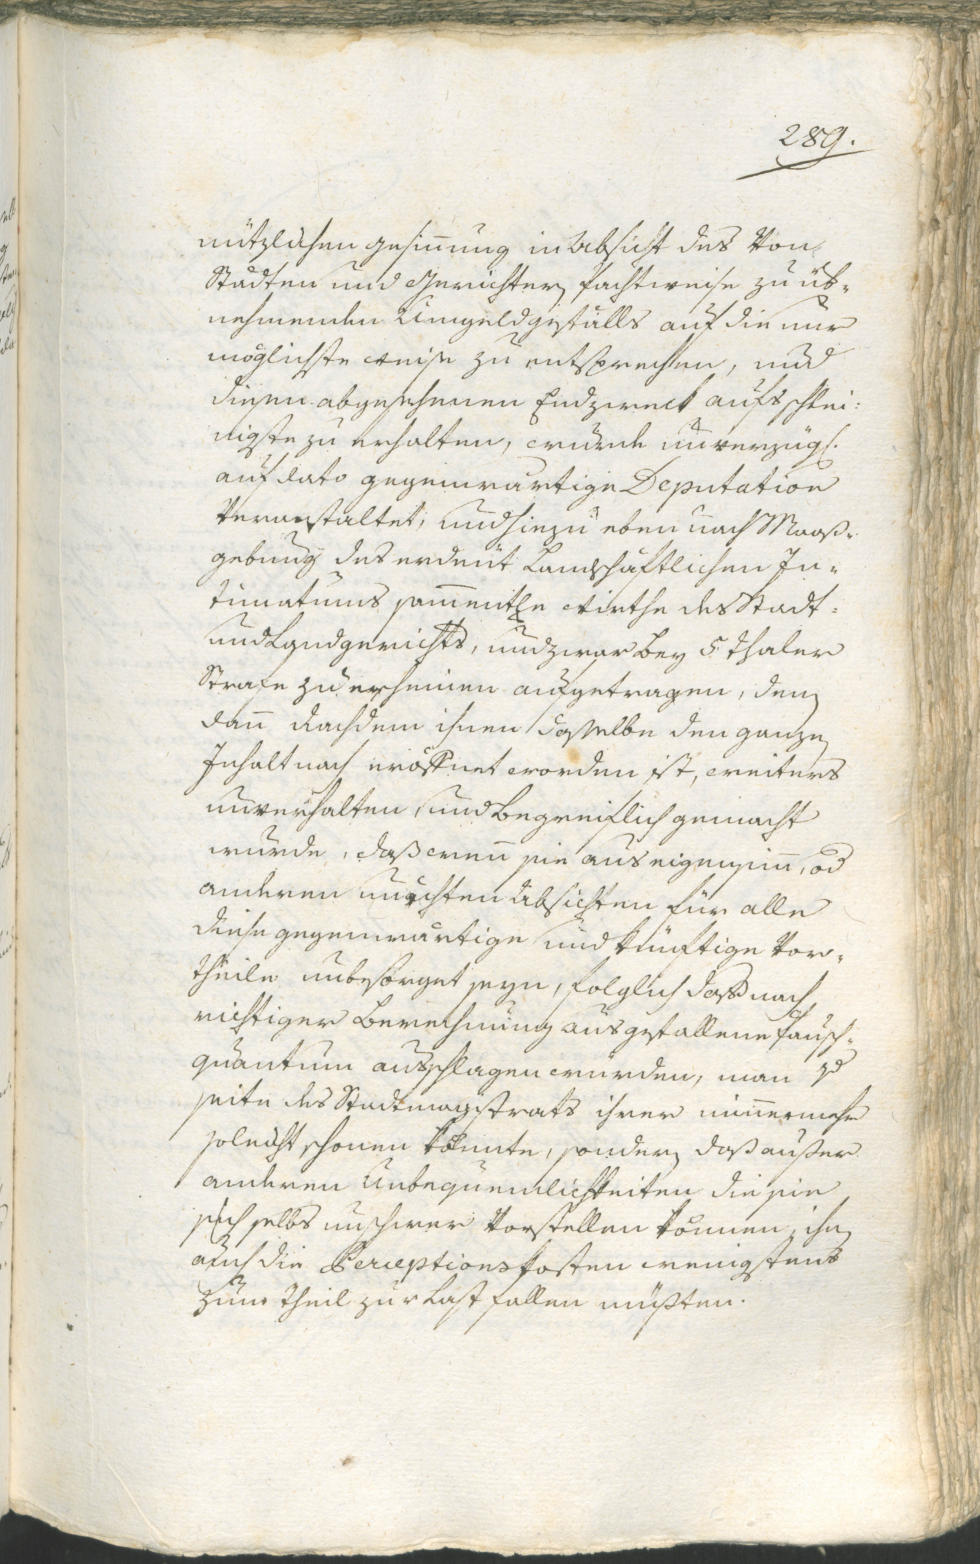 289.
nützlichen gesinnung in Absicht des Von
Städten und Gerichtern pachtweise zu üb-
nehmenden Umgeldgefälls auf die nur
möglichste weise zu entsprechen, und
diesen abgesehenen Endzweck aufs schlei-
nigste zu erhalten, wurde unverzügl.
auf dato gegenwärtige Deputation
Veranstaltet, und hiezu eben nach Maaß-
gebung des erdeut Landschäftlichen In-
timatums sammentle wirthe des Stadt-
und Landgerichts, und zwar bey 5 thaler
Strafe zu erscheinen aufgetragen, denen
dann nachdem ihnen dasselbe den ganzen
Inhalt nach eröffnet worden ist, weiters
unverhalten, und begreiflich gemacht
wurde, daß wenn sie aus eigensinn, od
anderen unächten Absichten für alle
diese gegenwärtige und künftige Vor-
theile unbesorget seyn, folglich das nach
richtiger Berechnung ausgefallene Pausch-
quantum ausschlagen würden, man
seite des Stadtmagistrats ihrer nimmermehr
so leicht schonen könnte, sondern daß außer
anderen Unbequemlichkeiten die sie
sich selbs unschwer Vorstellen können, ihnen
auch die Perceptions kosten wenigstens
zum theil zur Last fallen müßten.